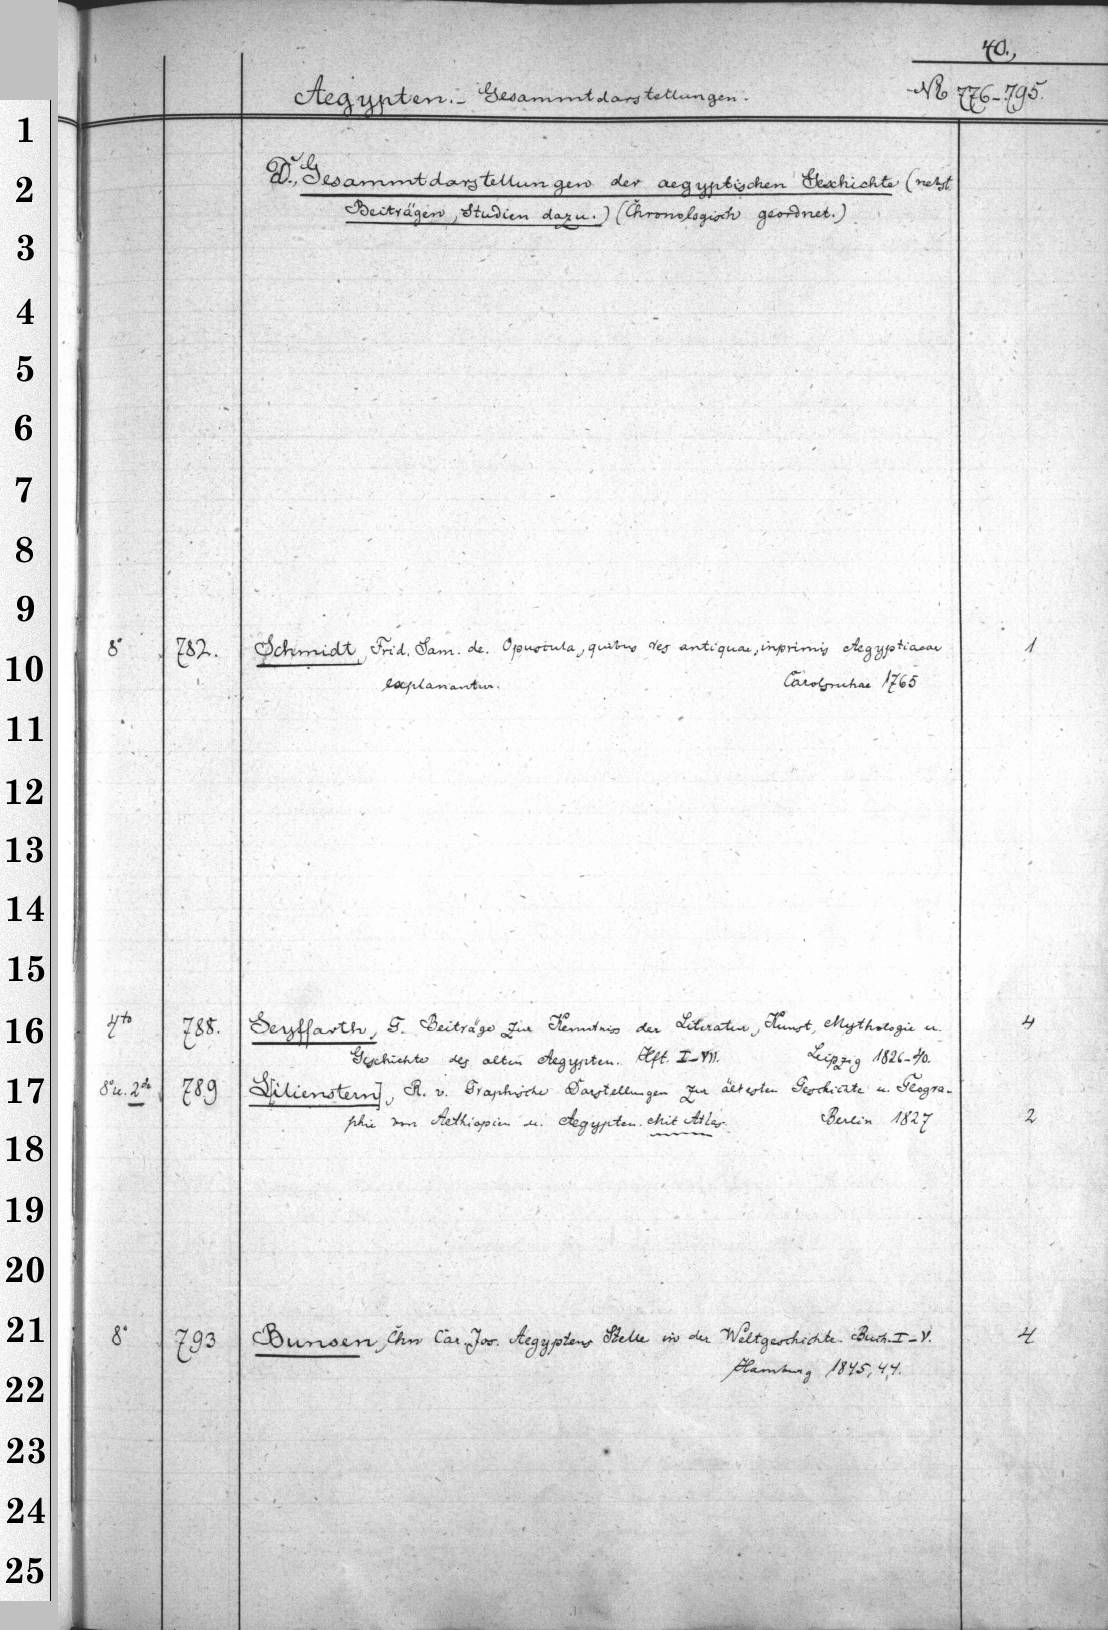 40.,
Aegypten. – Gesammtdarstellungen.
No 776–795.
D., Gesammtdarstellungen der aegyptischen Geschichte (nebst
Beiträgen, Studien dazu.) (Chronologisch geordnet.)
8° 782. Schmidt, Frid. Sam. de. Opuscula, quibus res antiquae, inprimis Aegyptiacae 1
explanantur. Carolsruhae 1765
4to 788. Seyffarth, G. Beiträge zur Kenntniss der Literatur, Kunst, Mythologie u. 4
Geschichte des alten Aegypten. Hft. I–VII. Leipzig 1826–40.
8° u. 2° 789 L[ilienstern], R. v. Graphische Darstellungen zur ältesten Geschichte u. Geogra-
phie von Aethiopien u. Aegypten. Mit Atlas. Berlin 1827 2
8° 793 Bunsen, Chn Car. Jos. Aegyptens Stelle in der Weltgeschichte. Buch. I–V. 4
Hamburg 1845, 44.
1
2
3
4
5
6
7
8
9
10
11
12
13
14
15
16
17
18
19
20
21
22
23
24
25